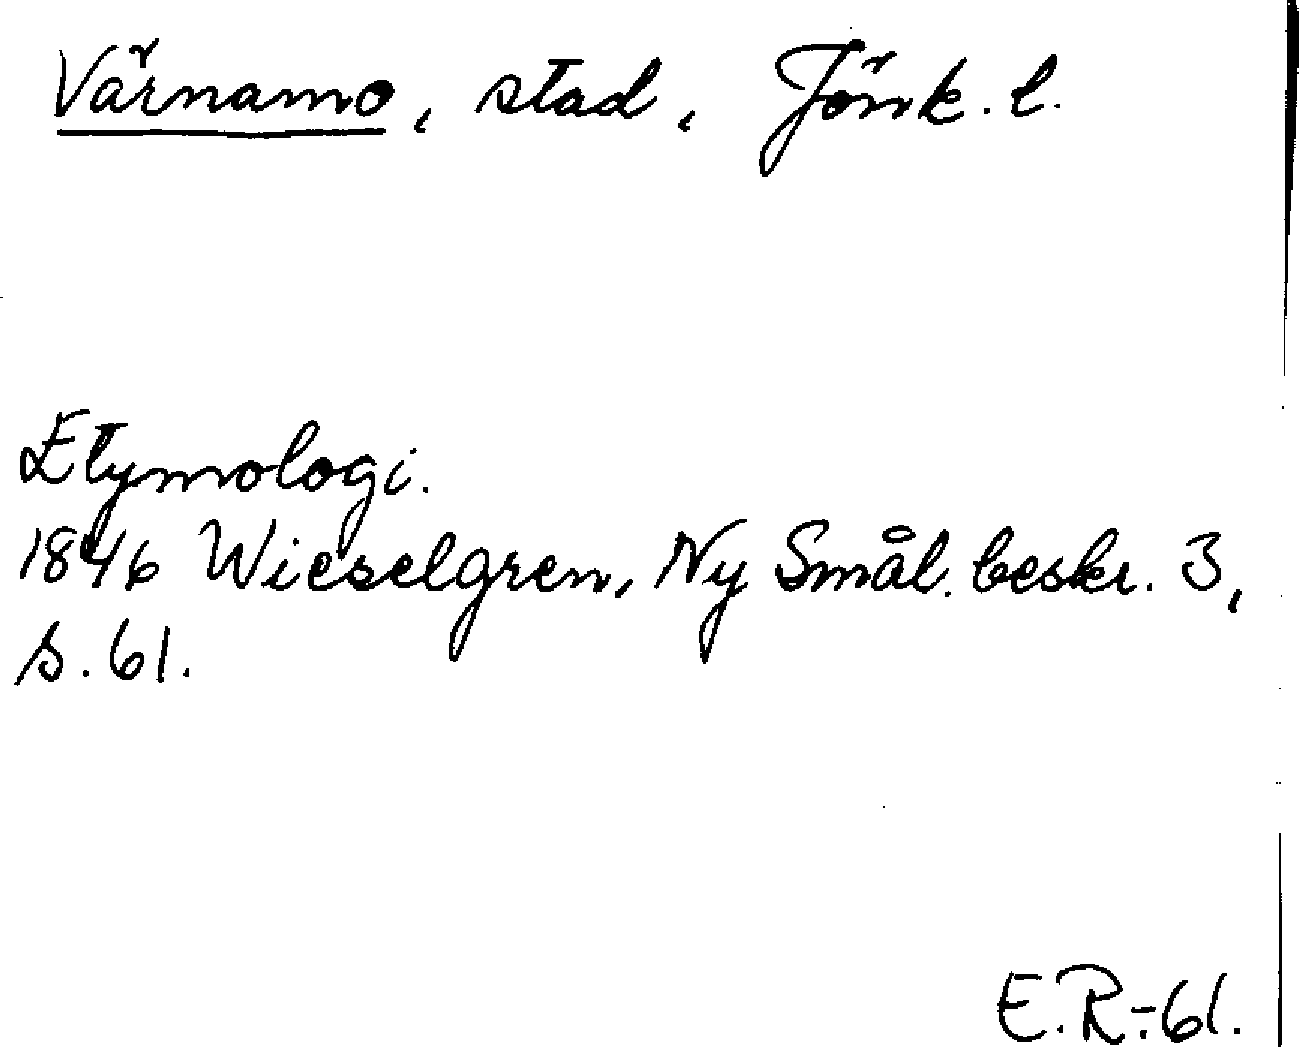 Värnamo, stad, Jönk. l.
Etymologi.
1846 Wieselgren, Ny Smål. beskr. 3,
s. 61.
E.R.-61.